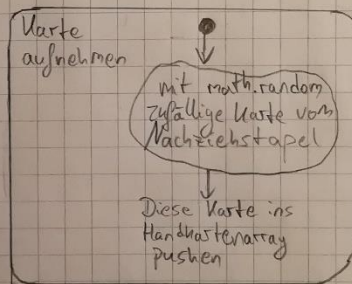 Karte
aufnehmen
mit math.random
zufällige Karte vom
Nachziehstapel
Diese Karte ins
Handkartenarray
pushen